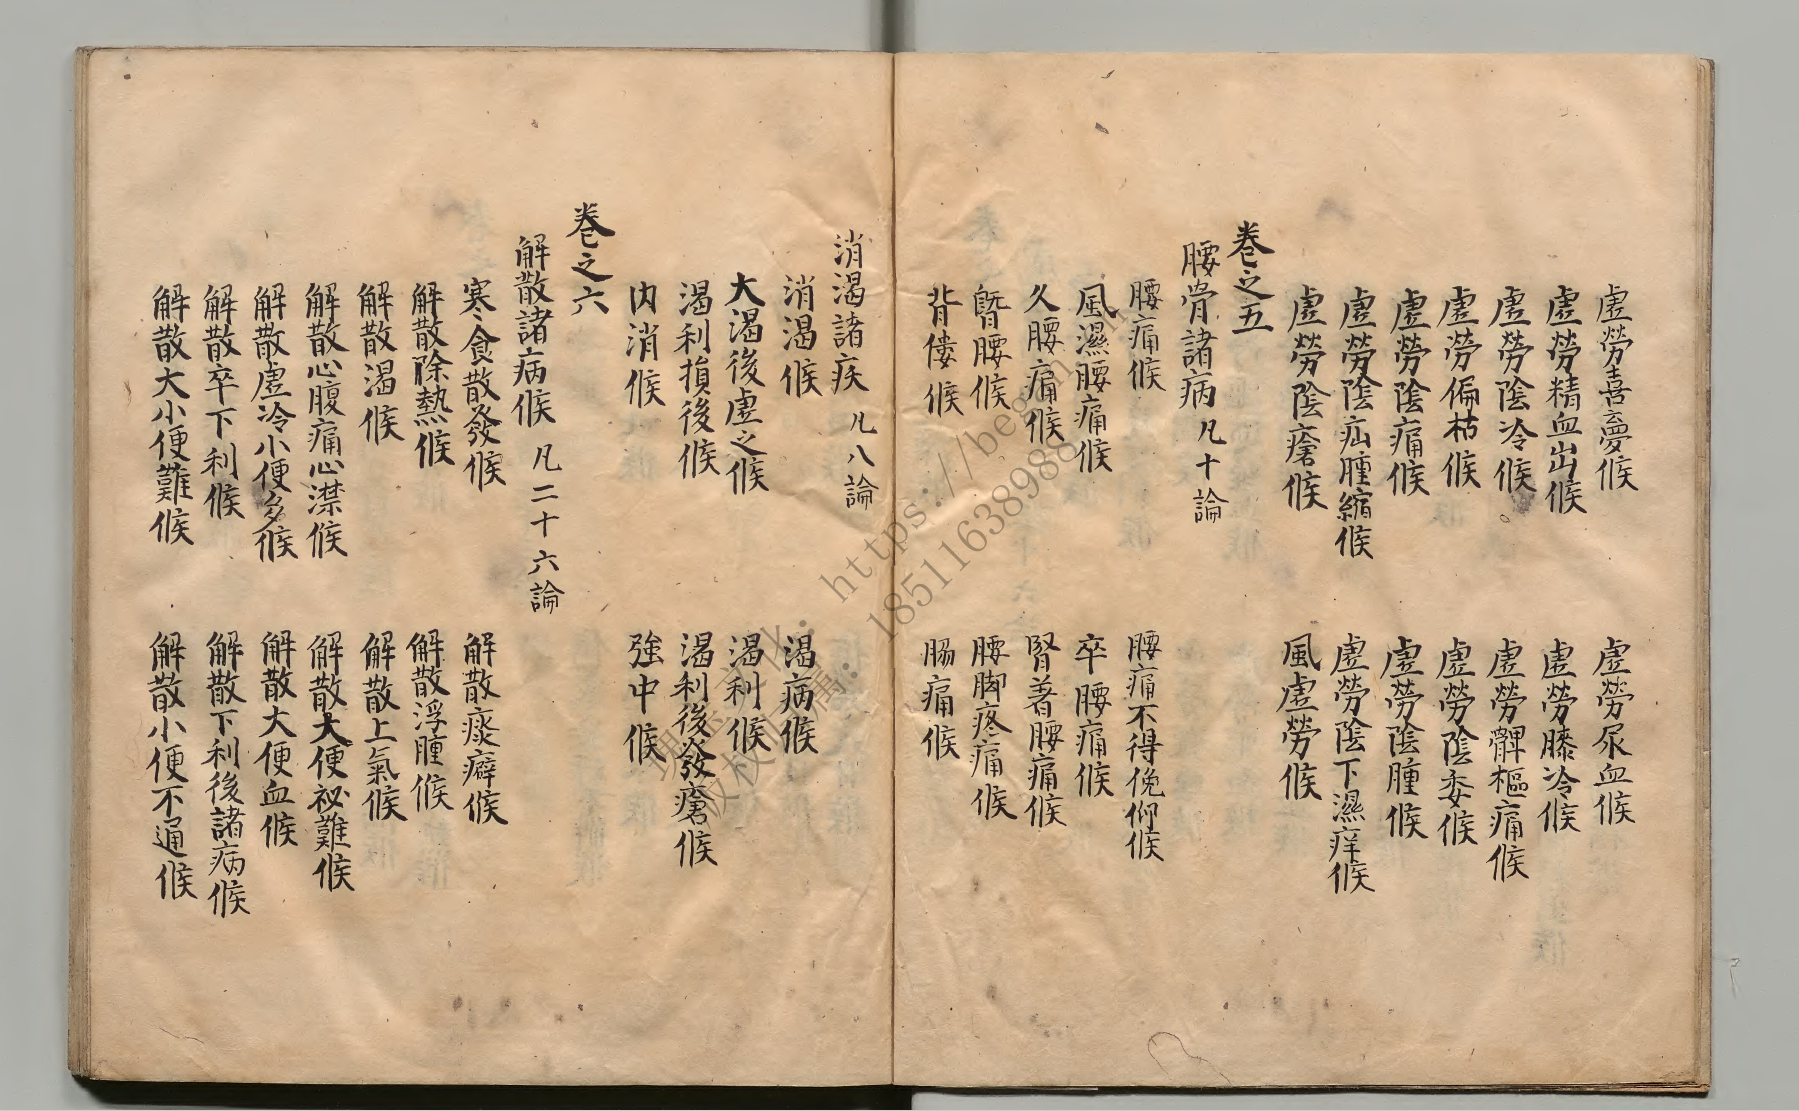 虛勞喜夢候　虛勞尿血候
虛勞精血出候　虛勞膝冷候
虛勞陰冷候　虛勞髀樞痛候
虛勞偏枯候　虛勞陰委候
虛勞陰痛候　虛勞陰腫候
虛勞陰疝腫縮候　虛勞陰下濕痒候
虛勞陰瘡候　風虛勞候
卷之五
腰背諸病 凡十論
腰痛候　腰痛不得俛仰候
風濕腰痛候　卒腰痛候
久腰痛候　腎著腰痛候
䐴腰候　腰脚疼痛候
背僂候　脇痛候
消渴諸疾 凡八論
消渴候　渴病候
大渴後虛之候　渴利候
渴利損後候　渴利後發瘡候
內消候　強中候
卷之六
解散諸病候 凡二十六論
寒食散發候　解散痰癖候
解散除熱候　解散浮腫候
解散渴候　解散上氣候
解散心腹痛心澿候　解散大便祕難候
解散虛冷小便多候　解散大便血候
解散卒下利候　解散下利後諸病候
解散大小便難候　解散小便不通候
https://
18511638988